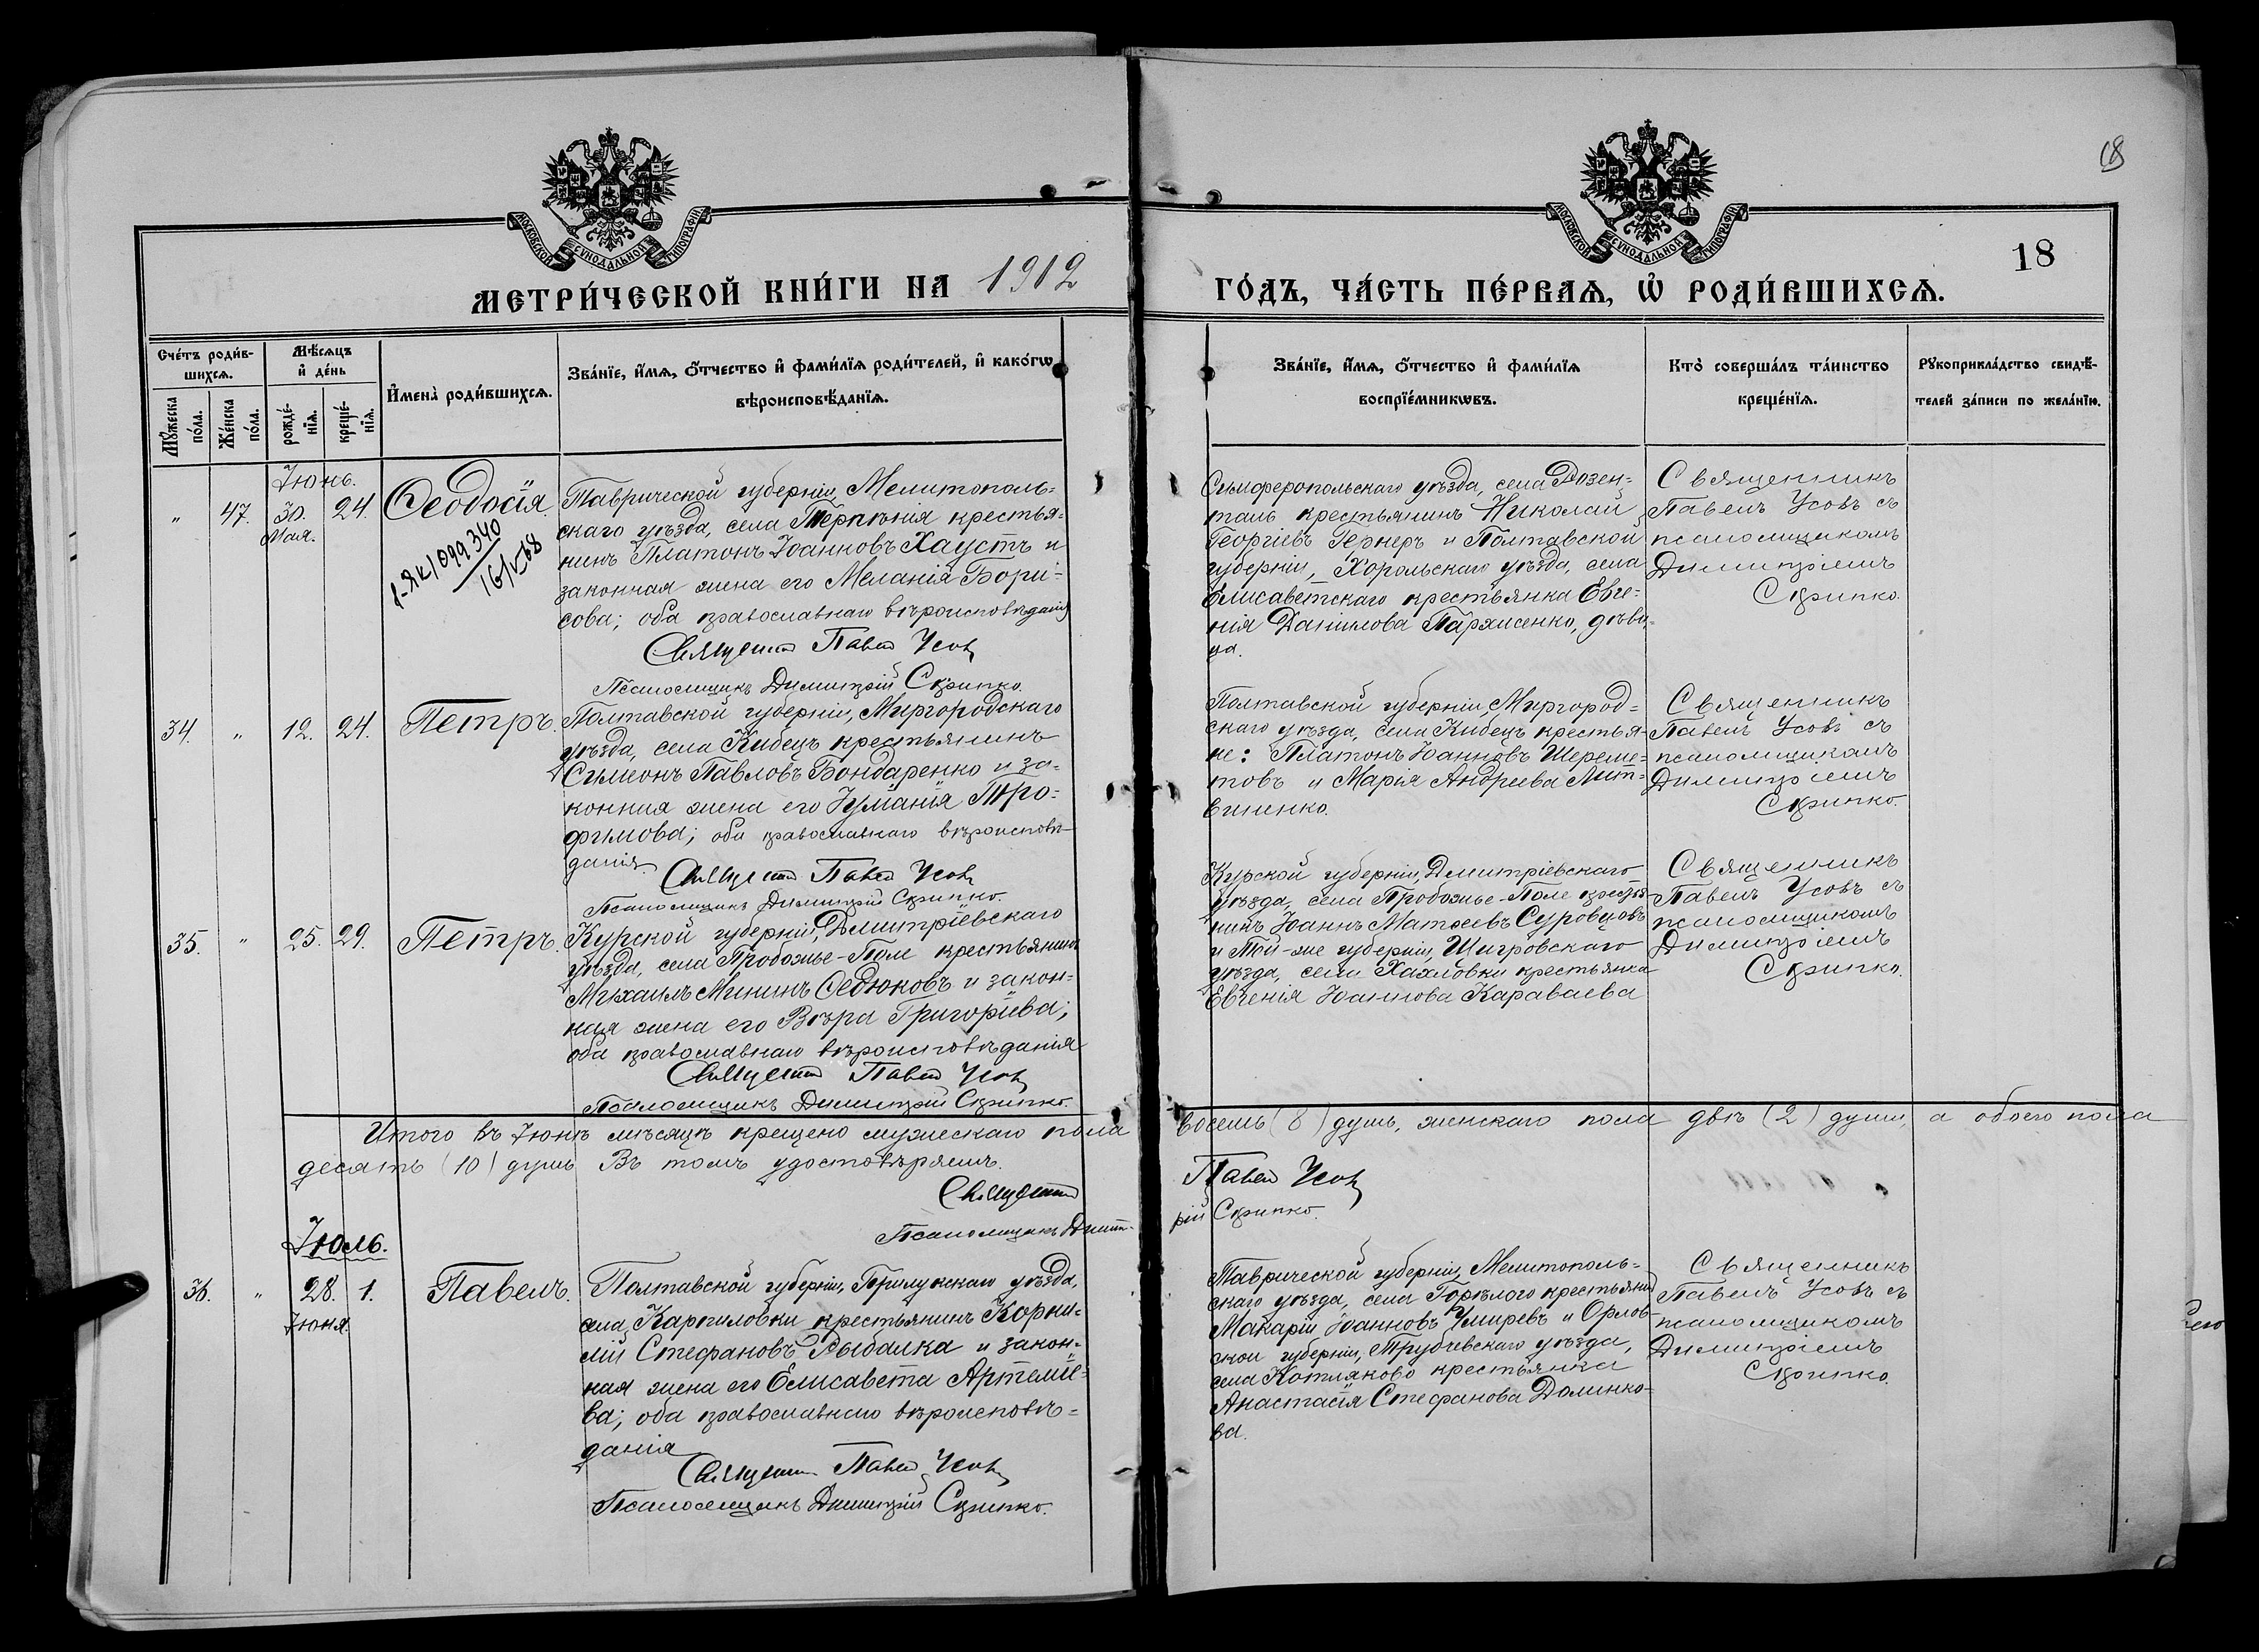 МОСКОВСКОЙ СѴНОДАЛЬНОЙ ТИПОГРАФІИ
МОСКОВСКОЙ СѴНОДАЛЬНОЙ ТИПОГРАФІИ
18
18
МЕТРИ́ЧЕСКОЙ КНИ́ГИ НА 1912
ГО́ДЪ, ЧА́СТЬ ПЕ́РВАѦ, Ѡ҆ РОДИ́ВШИХСѦ.
Сче́тъ роди́в-
шихсѧ.
Мѣ́сѧцъ
и҆ де́нь
Мꙋ́жеска
по́ла.
Же́нска
по́ла.
рожде́-
нїѧ.
креще́-
нїѧ.
И҆мена̀ роди́вшихсѧ.
Зва́нїе, и҆́мѧ, ѻ҆́тчество и҆ фами́лїѧ роди́телей, и҆ како́гѡ
вѣроисповѣ́данїѧ.
Зва́нїе, и҆́мѧ, ѻ҆́тчество и҆ фами́лїѧ
воспрїе́мникѡвъ.
Кто̀ соверша́лъ та́инство
креще́нїѧ.
Рꙋкоприкла́дство свидѣ́-
телей за́писи по жела́нїю.
Іюнь.
" 47. 30. 24. Ѳеодосія.
Мая.
1-ЯК 1099340
16/V-68
Таврической губерніи, Мелитополь-
скаго уѣзда, села Терпѣнія крестья-
нинъ Платонъ Іоанновъ Хаустъ и
законная жена его Меланія Бори-
сова; оба православнаго вѣроисповѣданія
Священникъ Павелъ Усовъ
Псаломщикъ Димитрій Скрипко.
Симферопольскаго уѣзда, села Розен-
таль крестьянинъ Николай
Георгіевъ Гернеръ и Полтавской
губерніи, Хорольскаго уѣзда, села
Елисаветскаго крестьянка Евге-
нія Данилова Пархисенко, дѣви-
ца.
Священникъ
Павелъ Усовъ съ
псаломщикомъ
Димитріемъ
Скрипко.
34. " 12. 24. Петръ.
Полтавской губерніи, Миргородскаго
уѣзда, села Кибецъ крестьянинъ
Симеонъ Павловъ Бондаренко и за-
конная жена его Іуліанія Тро-
фимова; оба православнаго вѣроисповѣ-
данія
Священникъ Павелъ Усовъ
Псаломщикъ Димитрій Скрипко.
Полтавской губерніи, Миргород-
скаго уѣзда, села Кибецъ крестья-
не: Платонъ Іоанновъ Шереме-
товъ и Марія Андреева Лит-
виненко.
Священникъ
Павелъ Усовъ съ
псаломщикомъ
Димитріемъ
Скрипко.
35. " 25. 29. Петръ.
Курской губерніи, Дмитріевскаго
уѣзда, села Пробожье-Поле крестьянинъ
Михаилъ Мининъ Федюковъ и закон-
ная жена его Вѣра Григорьева;
оба православнаго вѣроисповѣданія
Священникъ Павелъ Усовъ
Псаломщикъ Димитрій Скрипко.
Курской губерніи, Дмитріевскаго
уѣзда, села Пробожье-Поле крестья-
нинъ Іоаннъ Матѳеевъ Суровцовъ
и той-же губерніи, Щигровскаго
уѣзда, села Хахловки крестьянка
Евгенія Іоаннова Караваева
Священникъ
Павелъ Усовъ съ
псаломщикомъ
Димитріемъ
Скрипко.
Итого въ Іюнѣ мѣсяцѣ крещено мужескаго пола восемь (8) душъ, женскаго пола двѣ (2) души, а обоего пола
десять (10) душъ. Въ томъ удостовѣряемъ.
Священникъ Павелъ Усовъ
Псаломщикъ Димитрій Скрипко.
Іюль.
36. " 28. 1. Павелъ.
Іюня.
Полтавской губерніи, Прилукскаго уѣзда,
села Карпиловки крестьянинъ Корни-
лій Стефановъ Рыбалка и закон-
ная жена его Елисавета Артеміе-
ва; оба православнаго вѣроисповѣ-
данія
Священникъ Павелъ Усовъ
Псаломщикъ Димитрій Скрипко.
Таврической губерніи, Мелитополь-
скаго уѣзда, села Горѣлого крестьянинъ
Макарій Іоанновъ Умиревъ и Орлов-
ской губерніи, Трубчевскаго уѣзда,
села Котляково крестьянка
Анастасія Стефанова Долинко-
ва.
Священникъ
Павелъ Усовъ съ
псаломщикомъ
Димитріемъ
Скрипко.